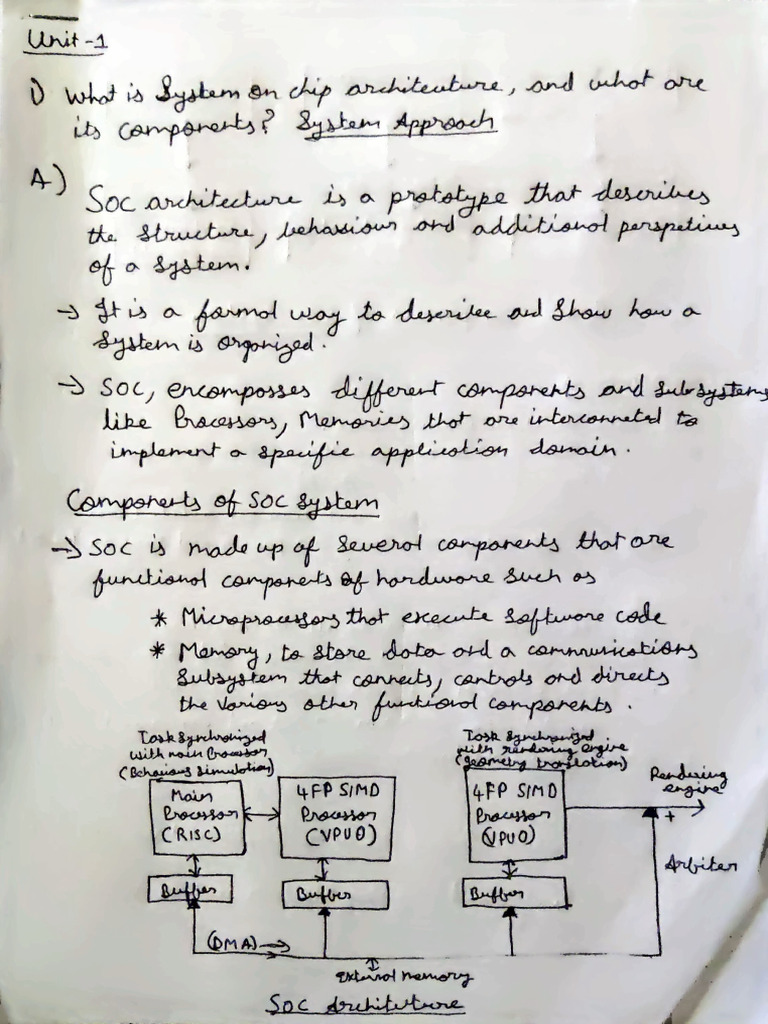 Unit-1
1) What is System on chip architeuture, and what are
its components? System Approach
A)
SOC architecture is a prototype that describes
the structure, behaviour and additional perspetives
of a system.
→ It is a formal way to describe and show how a
system is organized.
→ SOC, encompasses different components and subsystems
like Processors, Memories that are interconneted to
implement a specific application domain.
Components of SOC System
→ SOC is made up of several components that are
functional components of hardware such as
* Microprocessors that execute software code
* Memory, to store data and a communications
subsystem that connects, controls and directs
the various other functional components.
Task Synchronized
with main Processor
(Behaviour simulation)
Task Synchronized
with rendering engine
(Geometry translation)
Main
Processor
(RISC)
4FP SIMD
Processor
(VPU0)
4FP SIMD
Processor
(VPU0)
Rendering
engine
+
Arbiter
Buffer
Buffer
Buffer
(DMA)→
External memory
SOC Architeture